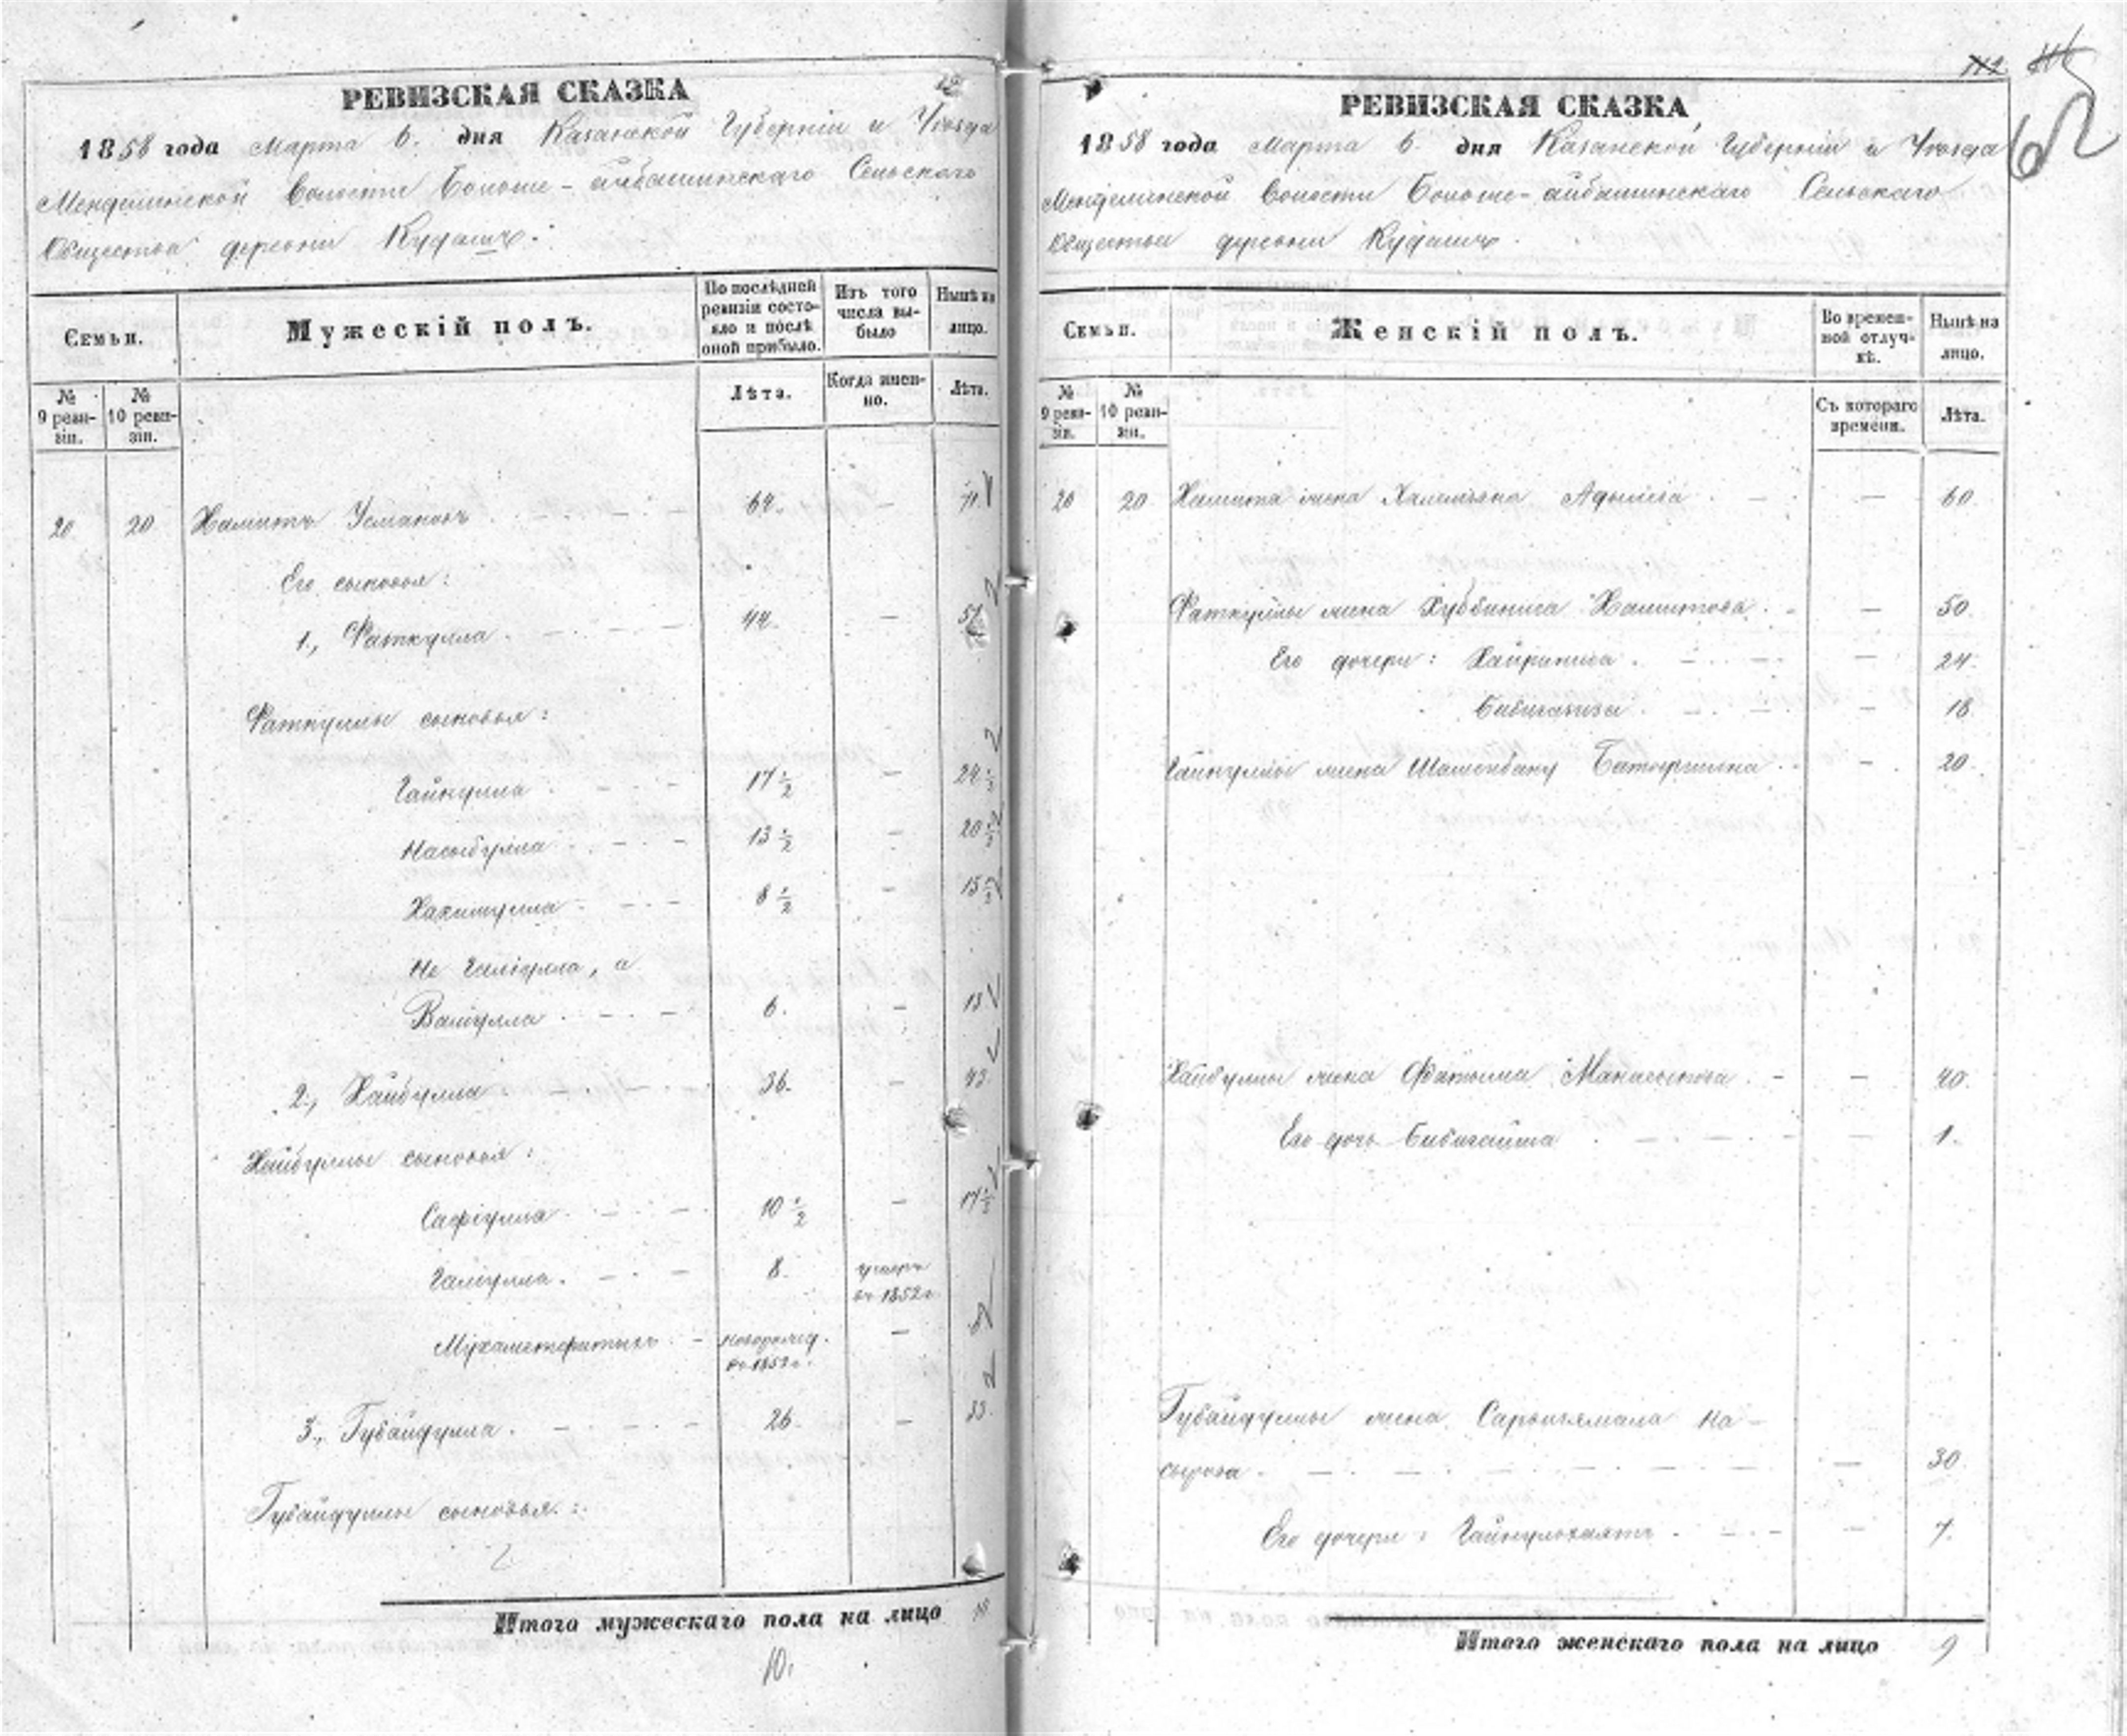 РЕВИЗСКАЯ СКАЗКА
1858 года Марта 6. дня Казанской Губерніи и Уѣзда
Менделинской Волости Больше-айбашинскаго Сельскаго
Общества деревни Кудашъ.
Семьи.
Мужескій полъ.
По послѣдней ревизіи состояло и послѣ оной прибыло.
Изъ того числа выбыло
Нынѣ на лицо.
№ 9 ревизіи.
№ 10 ревизіи.
Лѣта.
Когда именно.
Лѣта.
20 20 Хамитъ Усмановъ 64. — 71
Его сыновья:
1., Фаткулла 44. — 51
Фаткуллы сыновья:
Гайнулла 17 ½ — 24 ½
Насыбулла 13 ½ — 20 ½
Хакимулла 8 ½ — 15 ½
Не Галіулла, а
Валіулла 6. — 13
2., Хайбулла 36. — 43
Хайбуллы сыновья:
Сафіулла 10 ½ — 17 ½
Галіулла. 8. умеръ въ 1852 г.
Мухаметфатыхъ новорожд. —
3., Губайдулла. 26. — 33.
Губайдуллы сыновья:
Итого мужескаго пола на лицо 10
10.
РЕВИЗСКАЯ СКАЗКА,
1858 года Марта 6. дня Казанской Губерніи и Уѣзда
Менделинской Волости Больше-айбашинскаго Сельскаго
Общества деревни Кудашъ.
Семьи.
Женскій полъ.
Во временной отлучкѣ.
Нынѣ на лицо.
№ 9 ревизіи.
№ 10 ревизіи.
Съ котораго времени.
Лѣта.
20 20 Хамита жена — 60.
Фаткуллы жена Хуббиниса Хамитова — 50.
Его дочери: Хайриниса — 24.
— 18
Гайнуллы жена Шамсибану — 20.
Хайбуллы жена Фатыма — 40.
Его дочь Бибигайша — 1.
Губайдуллы жена На-
сырова — 30.
Его дочери: — 7.
Итого женскаго пола на лицо 9